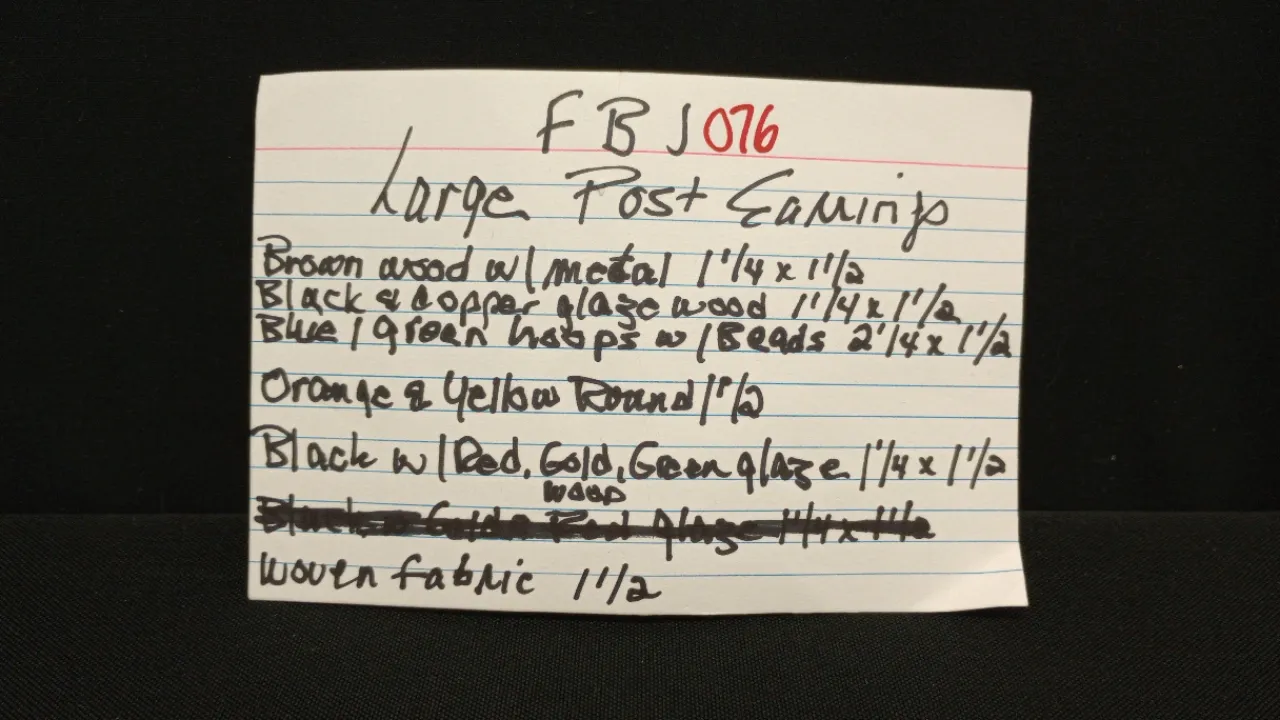 FBJ 076
Large Post Earrings
Brown wood w/metal 1 1/4 x 1 1/2
Black & Copper glaze wood 1 1/4 x 1 1/2
Blue/green hoops w/Beads 2 1/4 x 1 1/2
Orange & Yellow Round 1 1/2
Black w/Red, Gold, Green glaze 1 1/4 x 1 1/2
wood
Black w Gold & Red glaze 1 1/4 x 1 1/2
woven fabric 1 1/2